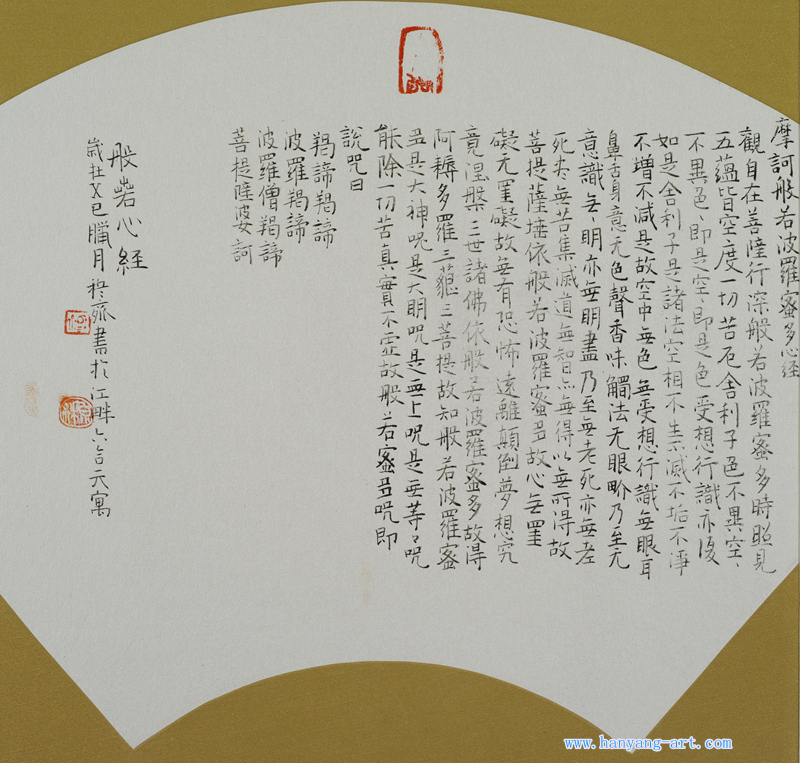 摩訶般若波羅蜜多心経
觀自在菩薩行深般若波羅蜜多時照見
五蘊皆空度一切苦厄舍利子色不異空、
不異色、即是空、即是色受想行識亦復
如是舍利子是諸法空相不生滅不垢不淨
不增不減是故空中無色無受想行識無眼耳
鼻舌身意无色聲香味觸法无眼界乃至无
意識無、明亦無明盡乃至無老死亦無老
死尽無苦集滅道無智亦無得以無所得故
菩提薩埵依般若波羅蜜多故心無罣
礙无罣礙故無有恐怖遠離顛倒夢想究
竟涅槃三世諸佛依般若波羅蜜多故得
阿耨多羅三藐三菩提故知般若波羅蜜
多是大神咒是大明咒是無上咒是無等々咒
能除一切苦真實不虛故般若蜜多咒即
說咒曰
羯諦羯諦
波羅羯諦
波羅僧羯諦
菩提薩婆訶
般若心経
歲在乂巳臘月 書於江畔六合元寓
www.hanyang-art.com